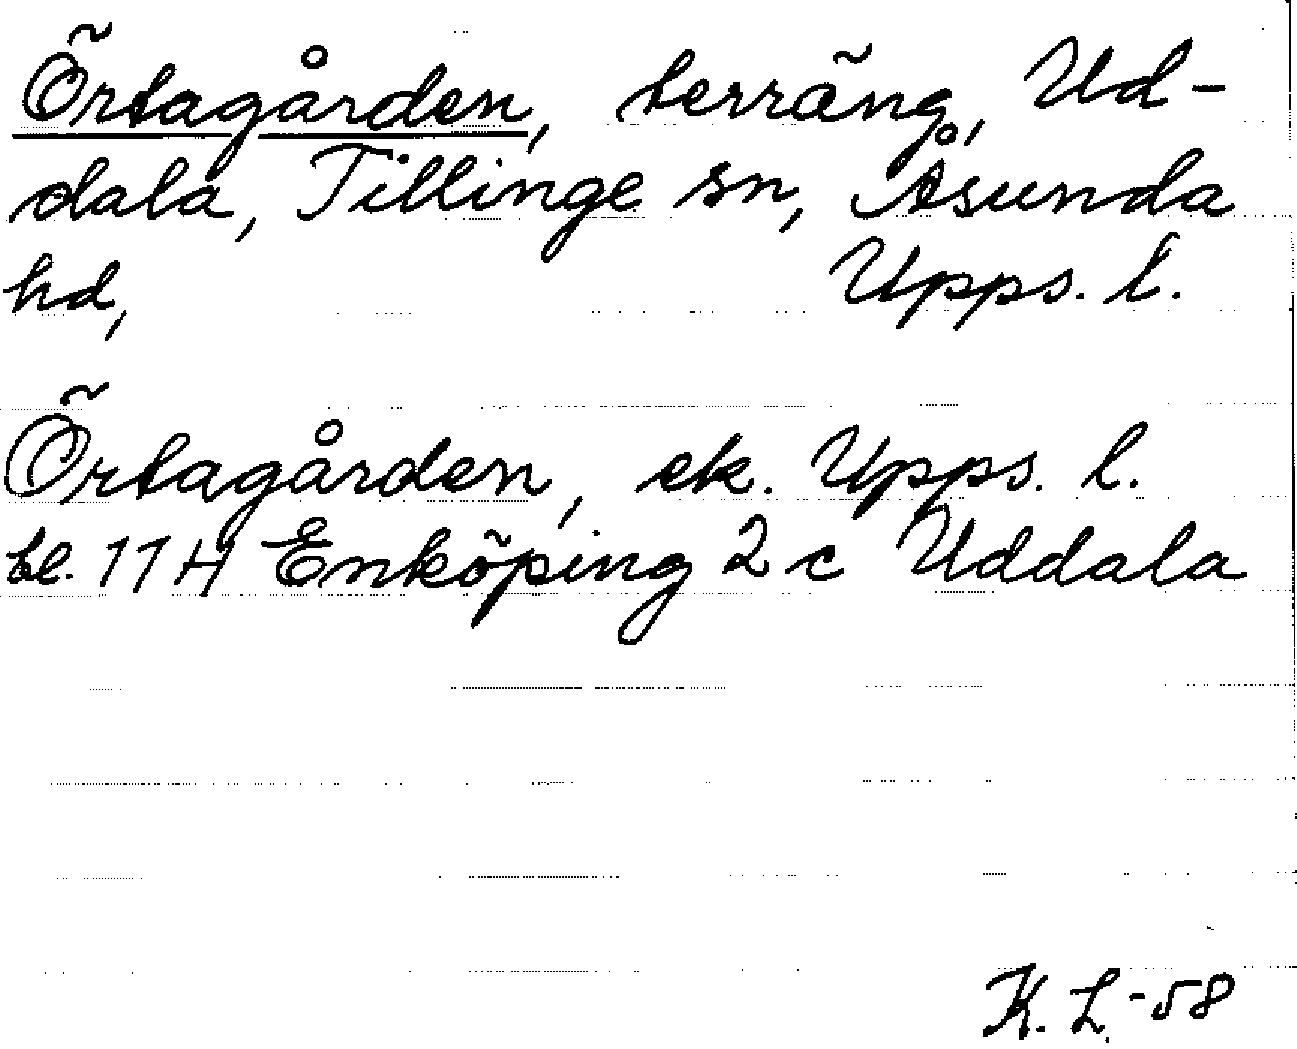 Örtagården, terräng, Ud-
dala, Tillinge sn, Åsunda
hd, Upps. l.
Örtagården, ek. Upps. l.
bl. 11 H Enköping 2 c Uddala
K. L. -58